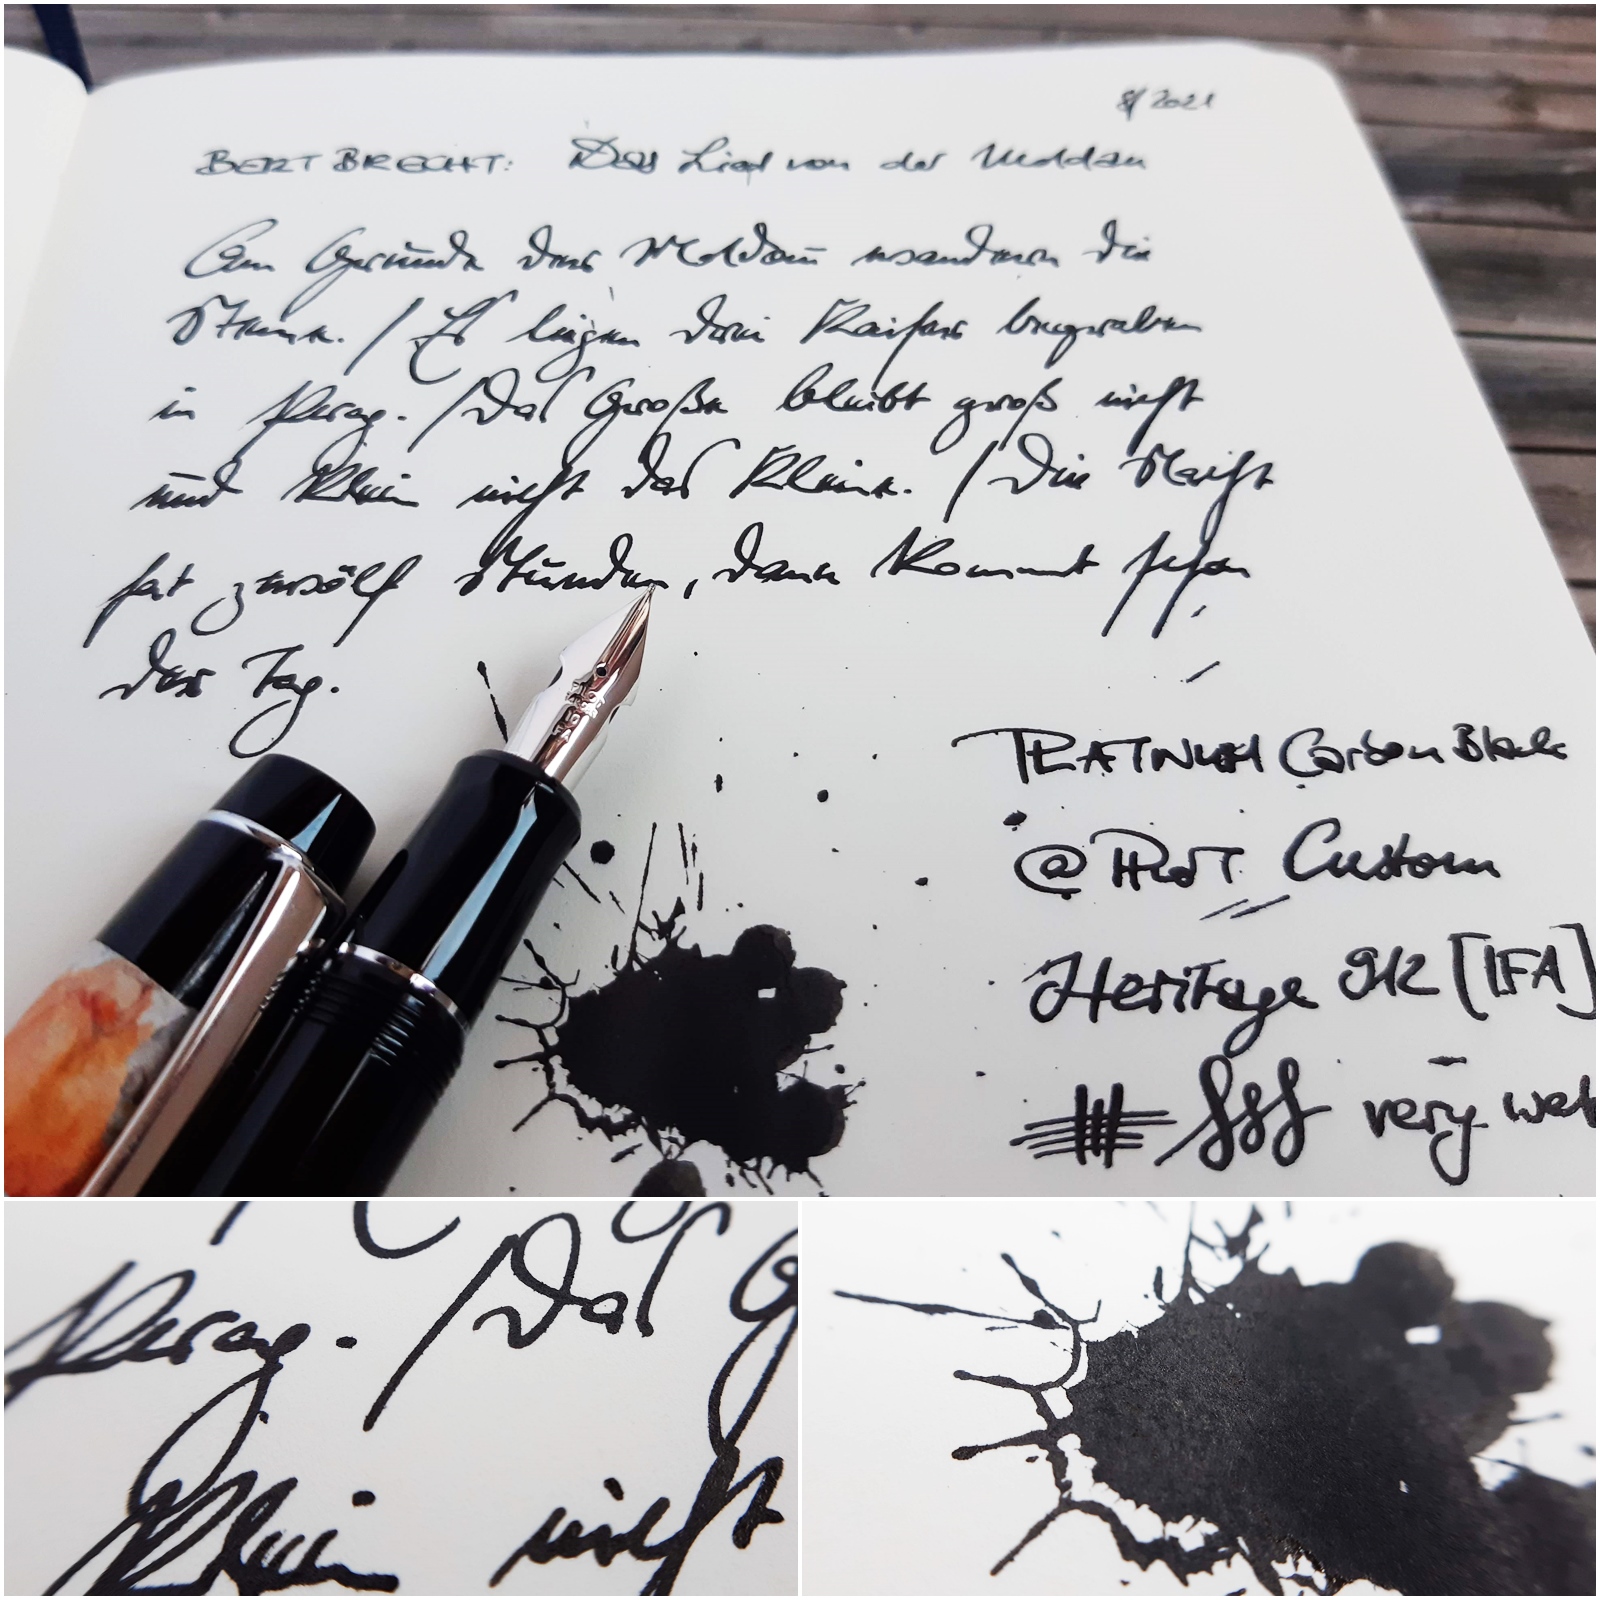 8/2021
BERT BRECHT: Das Lied von der Moldau
Am Grunde der Moldau wandern die
Steine. / Es liegen drei Kaiser begraben
in Prag. / Das Große bleibt groß nicht
und klein nicht das Kleine. / Die Nacht
hat zwölf Stunden, dann kommt schon
der Tag.
PLATINUM Carbon Black
@ PILOT Custom
Heritage 912 [FA]
very wet
Prag. / Das G
klein nicht